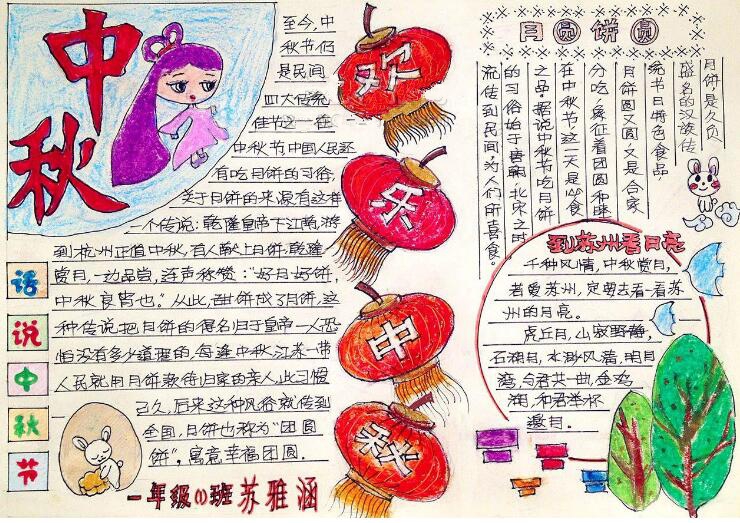 中秋
至今,中
秋节仍
是民间
四大传统
佳节之一在
中秋节中国人民还
有吃月饼的习俗,
关于月饼的来源有这样
一个传说:乾隆皇帝下江南,游
到杭州正值中秋,有人献上月饼,乾隆
赏月,一边品尝,连声称赞:“好月好饼,
中秋良宵也。”从此,甜饼成了月饼,这
种传说把月饼的得名归于皇帝一人恐
怕没有多少道理的,每逢中秋江苏一带
人民就用月饼款待归家的亲人,此习惯
已久,后来这种风俗就传到
全国,月饼也称为“团圆
饼”,寓意幸福团圆.
话
说
中
秋
节
一年级(1)班 苏雅涵
欢
乐
中
秋
月圆饼圆
月饼是久负
盛名的汉族传
统节日特色食品,
月饼圆又圆,又是合家
分吃,象征着团圆和睦
在中秋节这一天是必食
之品.据说中秋节吃月饼
的习俗始于唐朝.北宋之时
流传到民间,为人们所喜食。
到苏州看月亮
千种风情,中秋赏月,
若爱苏州,定要去看一看苏
州的月亮。
虎丘月,山寂野静,
石湖月,水渺风清,明月
湾,与君共一曲,金鸡
湖,和君举杯
邀月.